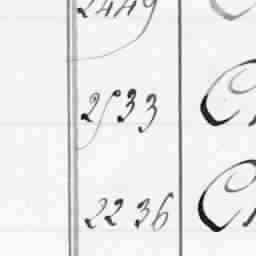 2449
2533
2236